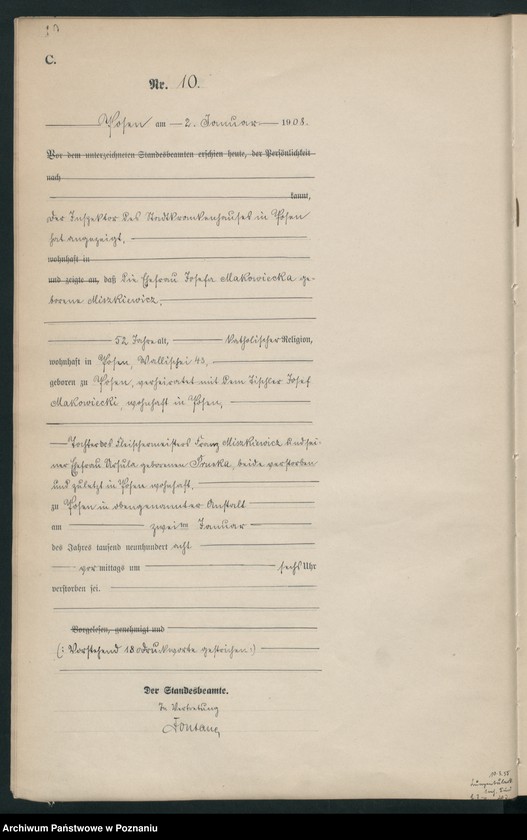 C.
Nr. 10.
Posen am 2. Januar 1908.
Vor dem unterzeichneten Standesbeamten erschien heute, der Persönlichkeit
nach
kannt,
Der Inspektor des Stadtkrankenhauses in Posen
hat angezeigt,
wohnhaft in
und zeigte an, daß die Ehefrau Josefa Makowiecka ge-
borene Miszkiewicz,
52 Jahre alt, katholischer Religion,
wohnhaft in Posen, Wallischei 43,
geboren zu Posen, verheiratet mit dem Tischler Josef
Makowiecki, wohnhaft in Posen,
Tochter des Fleischermeisters Franz Miszkiewicz und sei-
ner Ehefrau Ursula geborenen, beide verstorben
und zuletzt in Posen wohnhaft,
zu Posen in obengenannter Anstalt
am zweiten Januar
des Jahres tausend neunhundert acht
vormittags um sechs Uhr
verstorben sei.
Vorgelesen, genehmigt und
(: Vorstehend 18 Druckworte gestrichen :)
Der Standesbeamte.
In Vertretung
Archiwum Państwowe w Poznaniu